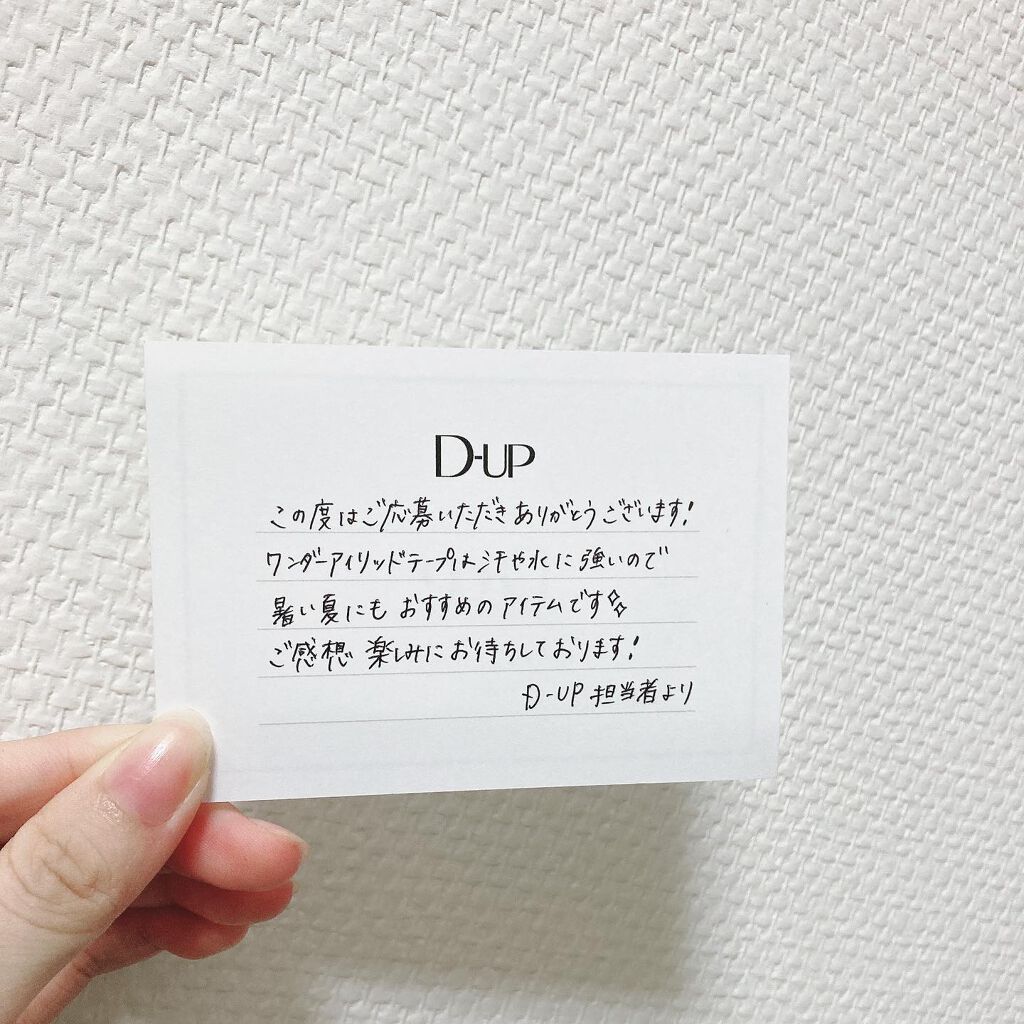 D-UP
この度はご応募いただきありがとうございます!
ワンダーアイリッドテープは汗や水に強いので
暑い夏にもおすすめのアイテムです✨
ご感想 楽しみにお待ちしております!
D-UP 担当者より